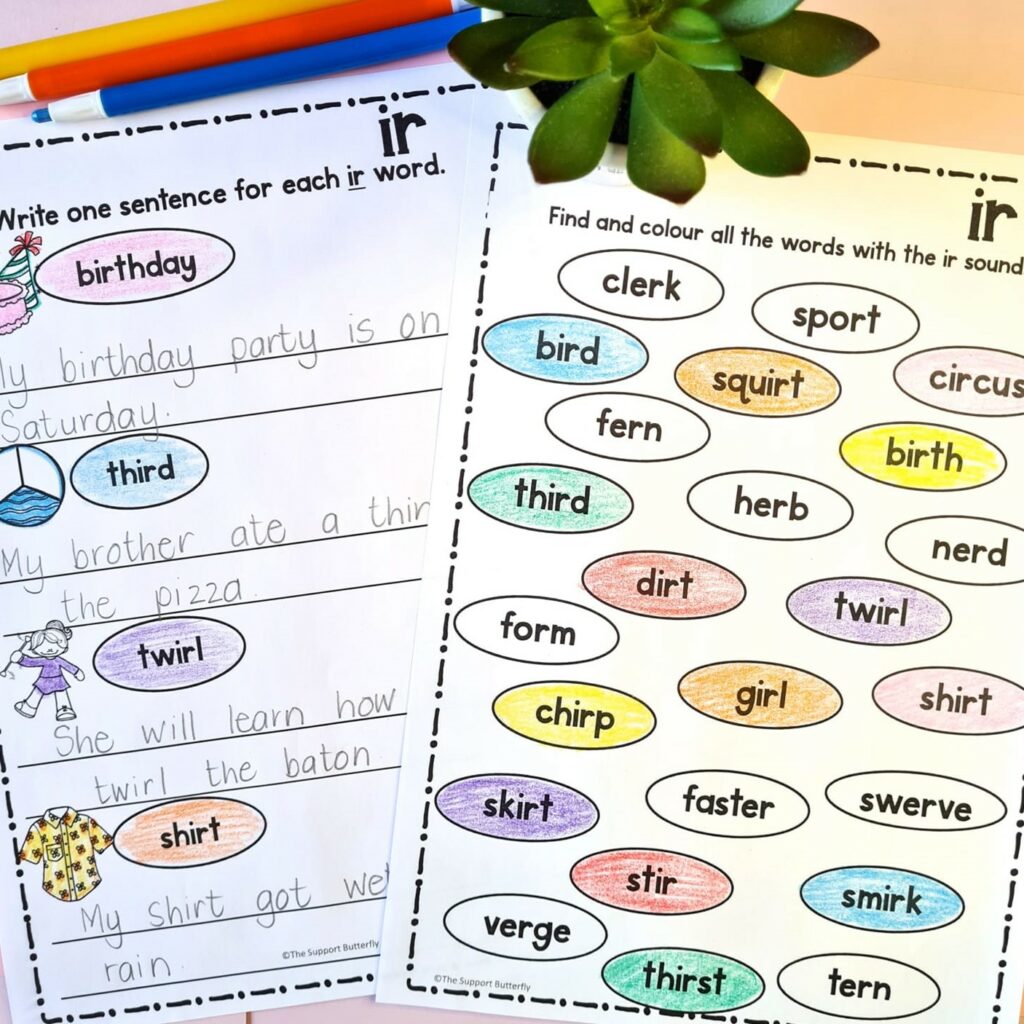 ir
Write one sentence for each ir word.
birthday
birthday party is on
Saturday.
third
My brother ate a
the pizza.
twirl
She will learn how
twirl the baton.
shirt
My shirt got
rain.
©The Support Butterfly
ir
Find and colour all the words with the ir sound
clerk
sport
bird
squirt
circus
fern
birth
third
herb
nerd
dirt
twirl
form
girl
shirt
chirp
skirt
faster
swerve
stir
smirk
verge
thirst
tern
©The Support Butterfly